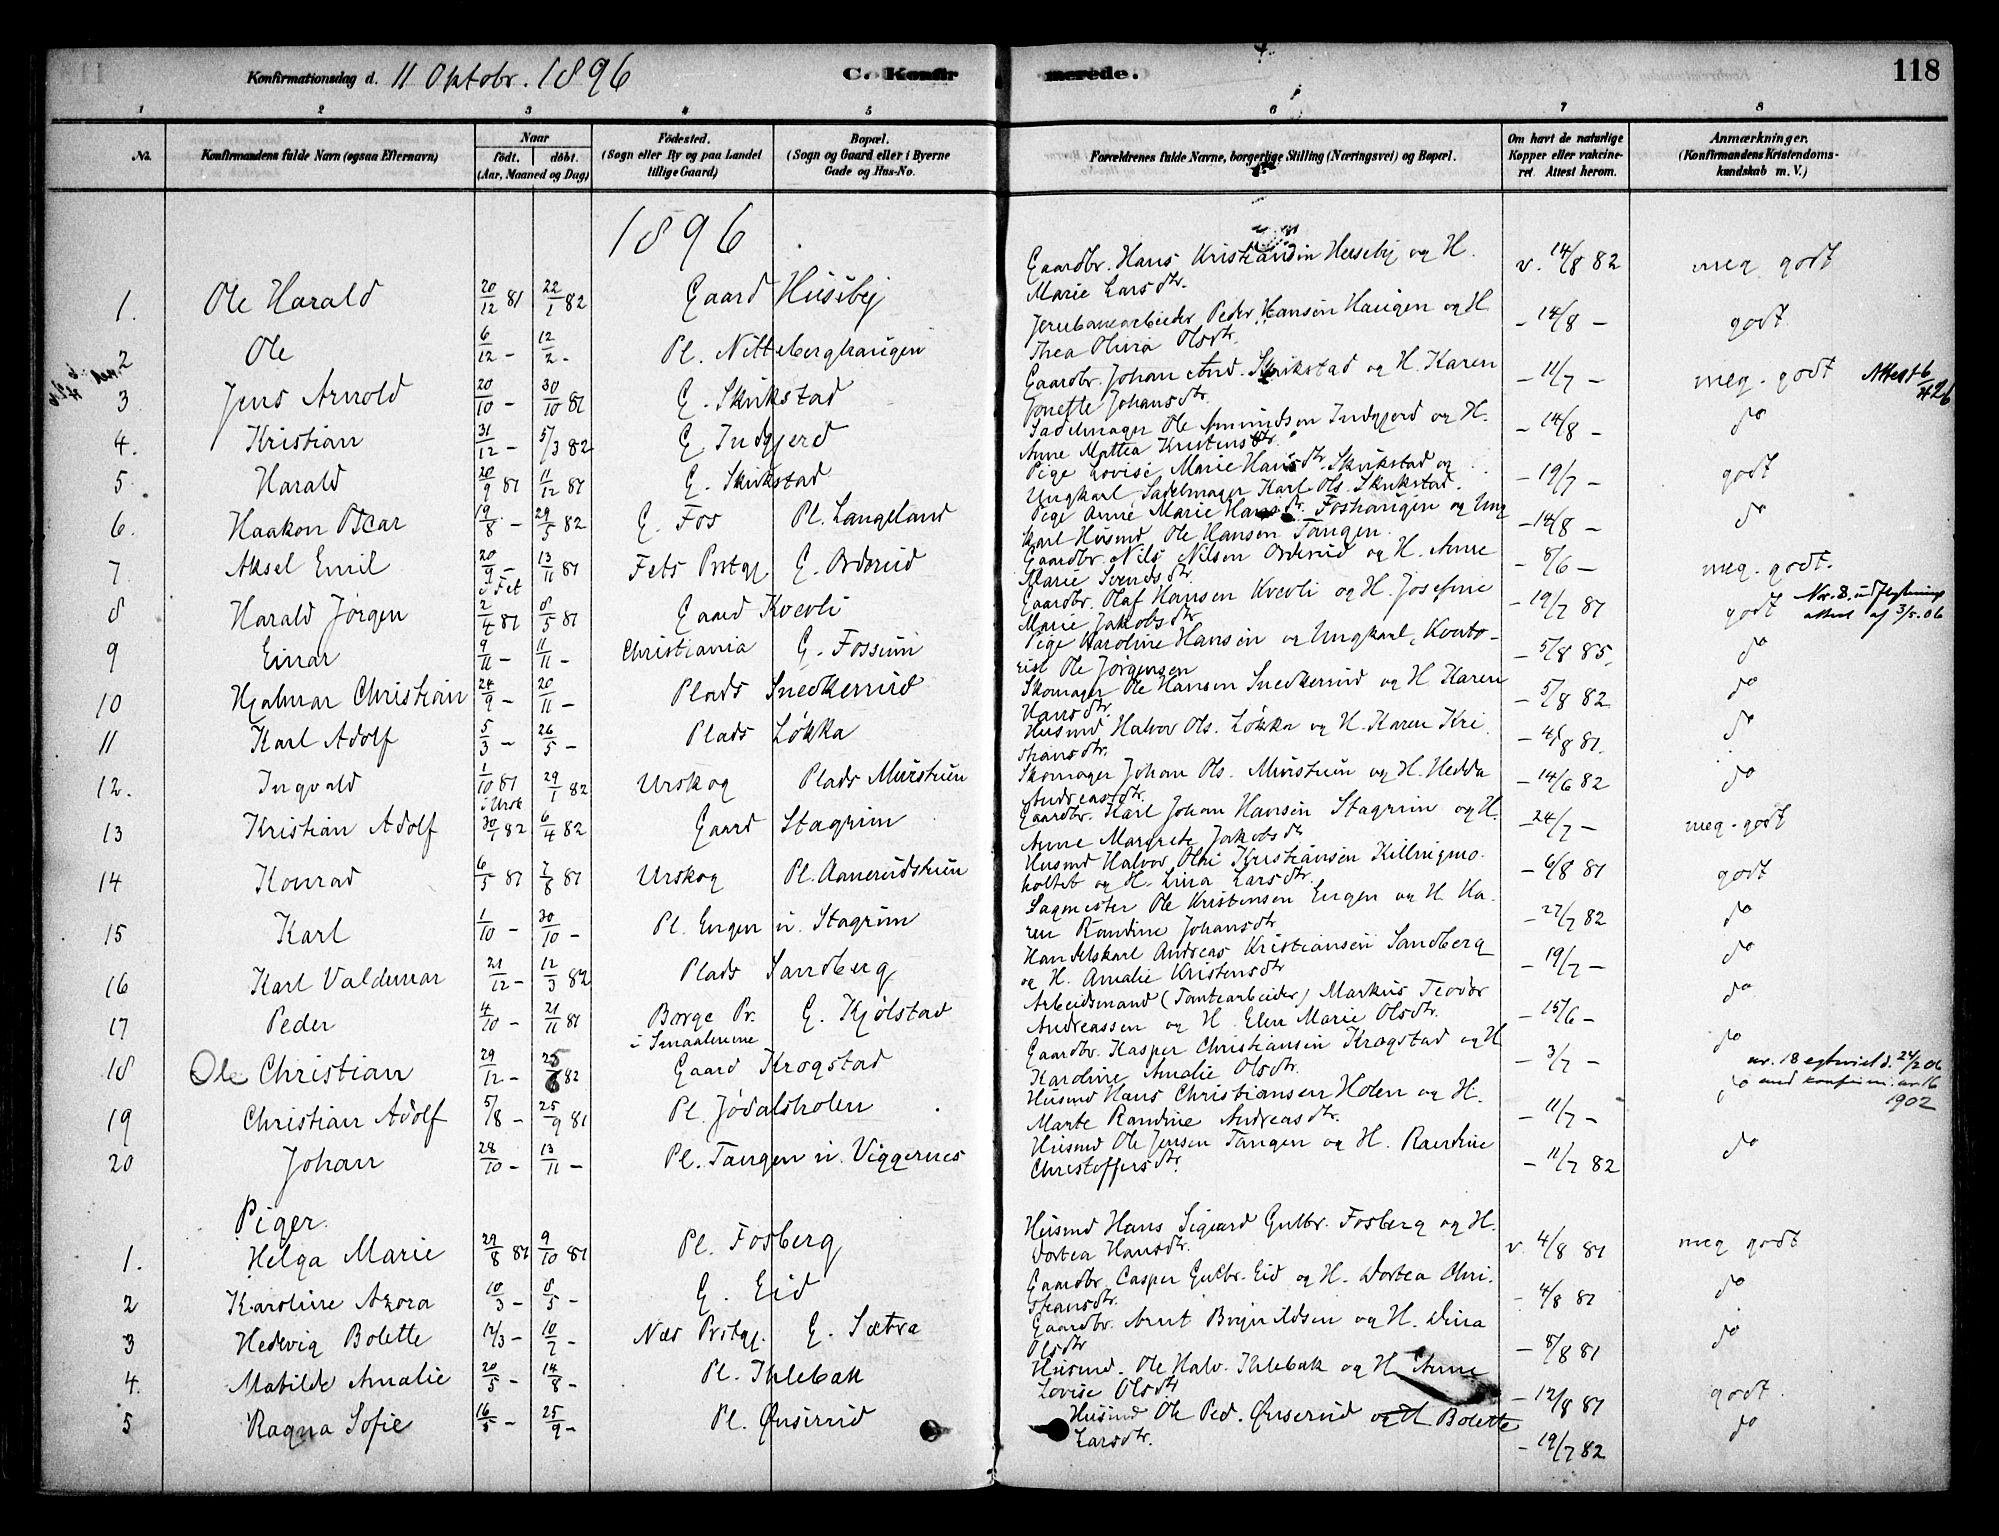 Konfirmationsdag d. 11 Oktobr. 1896
C. Konfirmerede.
118
1 2 3 4 5 6 7 8
No.
Konfirmandens fulde Navn (ogsaa Efternavn)
Naar
födt. döbt.
(Aar, Maaned og Dag)
Födested.
(Sogn eller By og paa Landet
tillige Gaard)
Bopæl.
(Sogn og Gaard eller i Byerne
Gade og Hus-No.
Forældrenes fulde Navne, borgerlige Stilling (Næringsvei) og Bopæl.
Om havt de naturlige
Kopper eller vakcine-
ret. Attest herom.
Anmærkninger.
(Konfirmandens Kristendoms-
kundskab m. V.)
1896
1. Ole Harald 20/12 81 22/1 82 Gaard Huseby
Gaardbr. Hans Kristiansen Huseby og H.
Marie Larsdtr.
v. 14/8 82 meg godt
2 Ole 6/12 - 12/2 - Pl. Nitteberghaugen
Jernbanearbeider Peder Hansen Haugen og H
Thea Olivia Olsdtr.
- 14/8 - godt
3 Jens Arnold 20/10 - 30/10 81 G. Skrikstad
Gaardbr. Johan And. Skrikstad og H. Karen
Jonette Johansdtr.
- 11/7 - meg. godt Attest 6/4 26
4. Kristian 31/12 - 5/3 82 G Indgjerd
Sadelmager Ole Amundsen Indgjerd og H.
Anne Mattea Kristensdtr.
- 14/8 - do
5 Harald 20/9 81 11/12 81 G. Skrikstad
Pige Lovise Marie Hansdtr. Skrikstad og
Ungkarl Sadelmager Karl Ols. Skrikstad.
- 19/7 - godt
6. Haakon Oscar 19/8 - 29/5 82 G. Fos Pl. Langeland
Pige Anne Marie Hansdtr. Foshaugen og Ung
karl Husmd Ole Hansen Tangen.
- 14/8 - do
7 Aksel Emil 20/9 - i Fet 13/11 81 Fets Prstgj. G. Orderud
Gaardbr. Nils Nilsen Orderud og H. Anne
Marie Svendsdtr.
- 8/6 - meg. godt.
8 Harald Jørgen 2/4 81 8/5 81 Gaard Kvevli
Gaardbr. Olaf Hansen Kvevli og H. Josefine
Marie Jakobsdtr.
- 19/7 81 godt Nr. 8. udflytnings
attest af 3/5. 06
9 Einar 9/11 - 11/11 - Christiania G. Fossum
Pige Karoline Hansen og Ungkarl, Konto-
rist Ole Jørgensen
- 5/8 85. do
10 Hjalmar Christian 24/9 - 20/11 - Plads Snedkerrud
Skomager Ole Hansen Snedkerrud og H Karen
Hansdtr.
- 5/8 82 do
11 Karl Adolf 5/3 - 26/5 - Plads Løkka
Husmd Halvor Ols. Løkka og H. Karen Kri
stiansdtr.
- 4/8 81. do
12. Ingvald 1/10 81 i Ursk 29/1 82 Urskog Plads Murstuen
Skomager Johan Ols. Murstuen og H. Hedda
Andreasdtr.
- 14/6 82 do
13 Kristian Adolf 30/1 82 6/4 82 Gaard Stagrim
Gaardbr. Karl Johan Hansen Stagrim og H.
Anne Margrete Jakobsdtr
- 24/7 - meg. godt
14 Konrad 6/5 81 7/8 81 Urskog Pl. Aanerudstuen
Husmd Halvor Olai Kristiansen Killingmo.
holtet og H. Lina Larsdtr.
- 6/8 81 godt
15 Karl 1/10 - 30/10 - Pl. Engen u. Stagrim
Sagmester Ole Kristensen Engen og H Ka.
ren Randine Johansdtr.
- 27/7 82 do
16 Karl Valdemar 21/12 - 12/3 82 Plads Sandberg
Handelskarl Andreas Kristiansen Sandberg
og H. Amalie Kristensdtr
- 19/7 - do
17 Peder 4/10 - 21/11 81 Borge Pr. i Smaalenene G. Kjølstad
Arbeidsmand (Tomtearbeider) Markus Teodor
Andreassen og H. Elen Marie Olsdtr.
- 15/6 - do
18 Ole Christian 29/12 - 25/6 82 Gaard Krogstad
Gaardbr. Kasper Christiansen Krogstad og H
Karoline Amalie Olsdtr.
- 3/7 - do nr. 18 egteviet d. 24/2 06
med konfirm. nr 16
1902
19 Christian Adolf 5/8 - 25/9 81 Pl. Jødalsholen
Husmd Hans Christiansen Holen og H.
Marte Randine Andreasdtr.
- 11/7 - do
20 Johan 28/10 - 13/11 - Pl. Tangen u. Viggernes
Husmd Ole Jensen Tangen og H. Randine
Christoffersdtr.
- 11/7 82 do
Piger.
1. Helga Marie 29/8 81 9/10 81 Pl. Fosberg
Husmd Hans Sigvard Gulbr. Fosberg og H.
Dortea Hansdtr.
v. 4/8 81 meg godt
2 Karoline Azora 10/3 - 8/5 - G. Eid
Gaardbr Casper Gulbr. Eid og H. Dortea Chri.
stiansdtr.
- 4/8 81 do
3 Hedevig Bolette 12/3 - 10/7 - Næs Prstgj. G. Sætra
Gaardbr. Arnt Brynildsen og H. Dina
Olsdtr
- 8/8 81 do
4. Matilde Amalie 20/5 - 14/8 - Pl. Ihlebak
Husmd. Ole Halv. Ihlebak og H Anne
Lovise Olsdtr
- 12/8 81 godt
5 Ragna Sofie 16/5 - 25/9 - Pl. Quserud
Husmd Ole Ped. Quserud og H Bolette
Larsdtr.
- 19/7 82 do